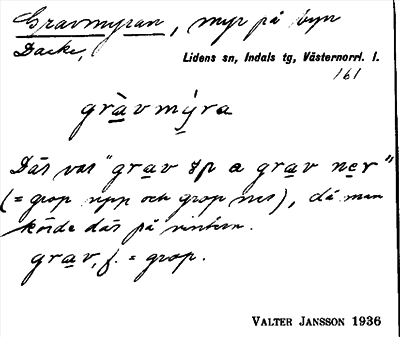 Gravmyran, myr på byn
Backe,
Lidens sn, Indals tg, Västernorrl. l.
161
gràvmýra
Där var "grav ɤp a grav ner"
(= grop upp och grop ner), då man
körde där på vintern.
grav, f. = grop.
VALTER JANSSON 1936